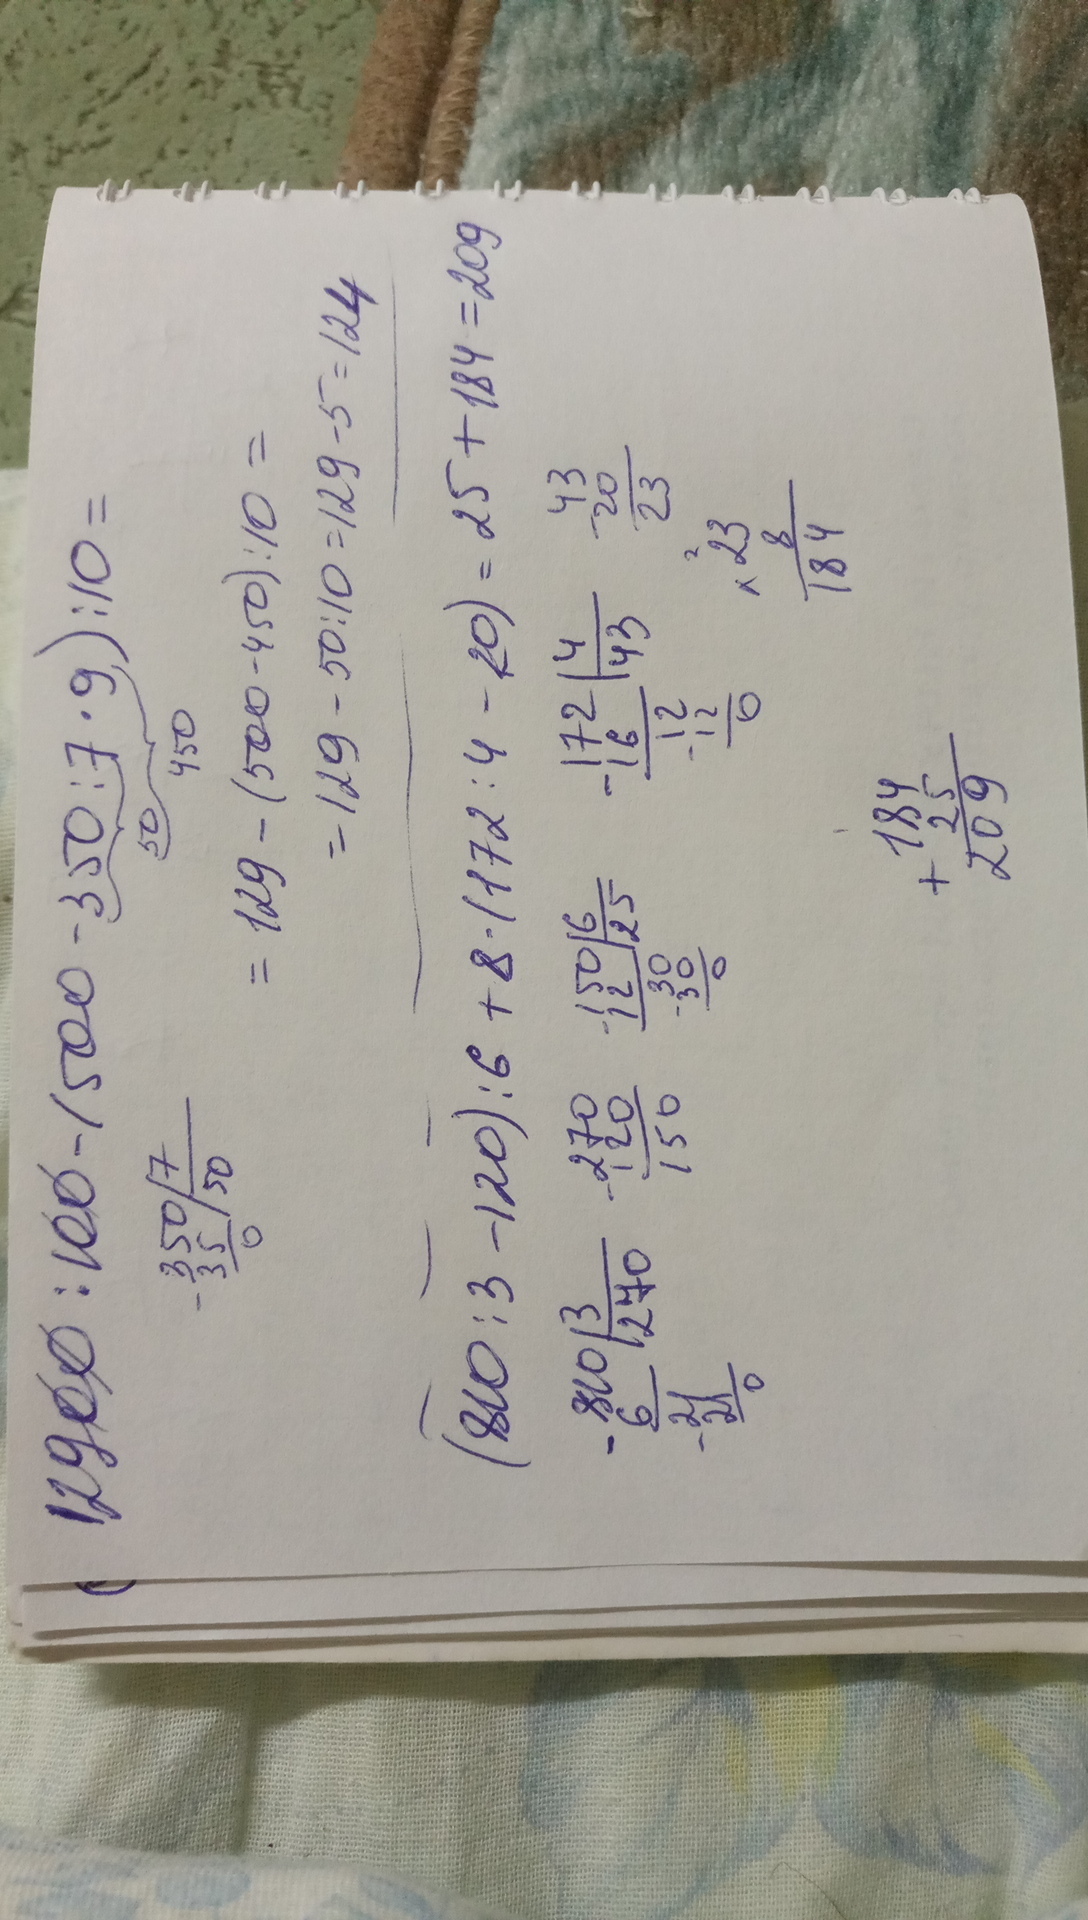 12900 : 100 - (500 - 350 : 7 · 9) : 10 =
50
450
-350 | 7
35 | 50
0
= 129 - (500 - 450) : 10 =
= 129 - 50 : 10 = 129 - 5 = 124
(810 : 3 - 120) : 6 + 8 · (172 : 4 - 20) = 25 + 184 = 209
-810 | 3
6 | 270
-21
21
0
-270
120
150
-150 | 6
12 | 25
-30
30
0
-172 | 4
16 | 43
-12
12
0
-43
20
23
2
×23
8
184
+184
25
209